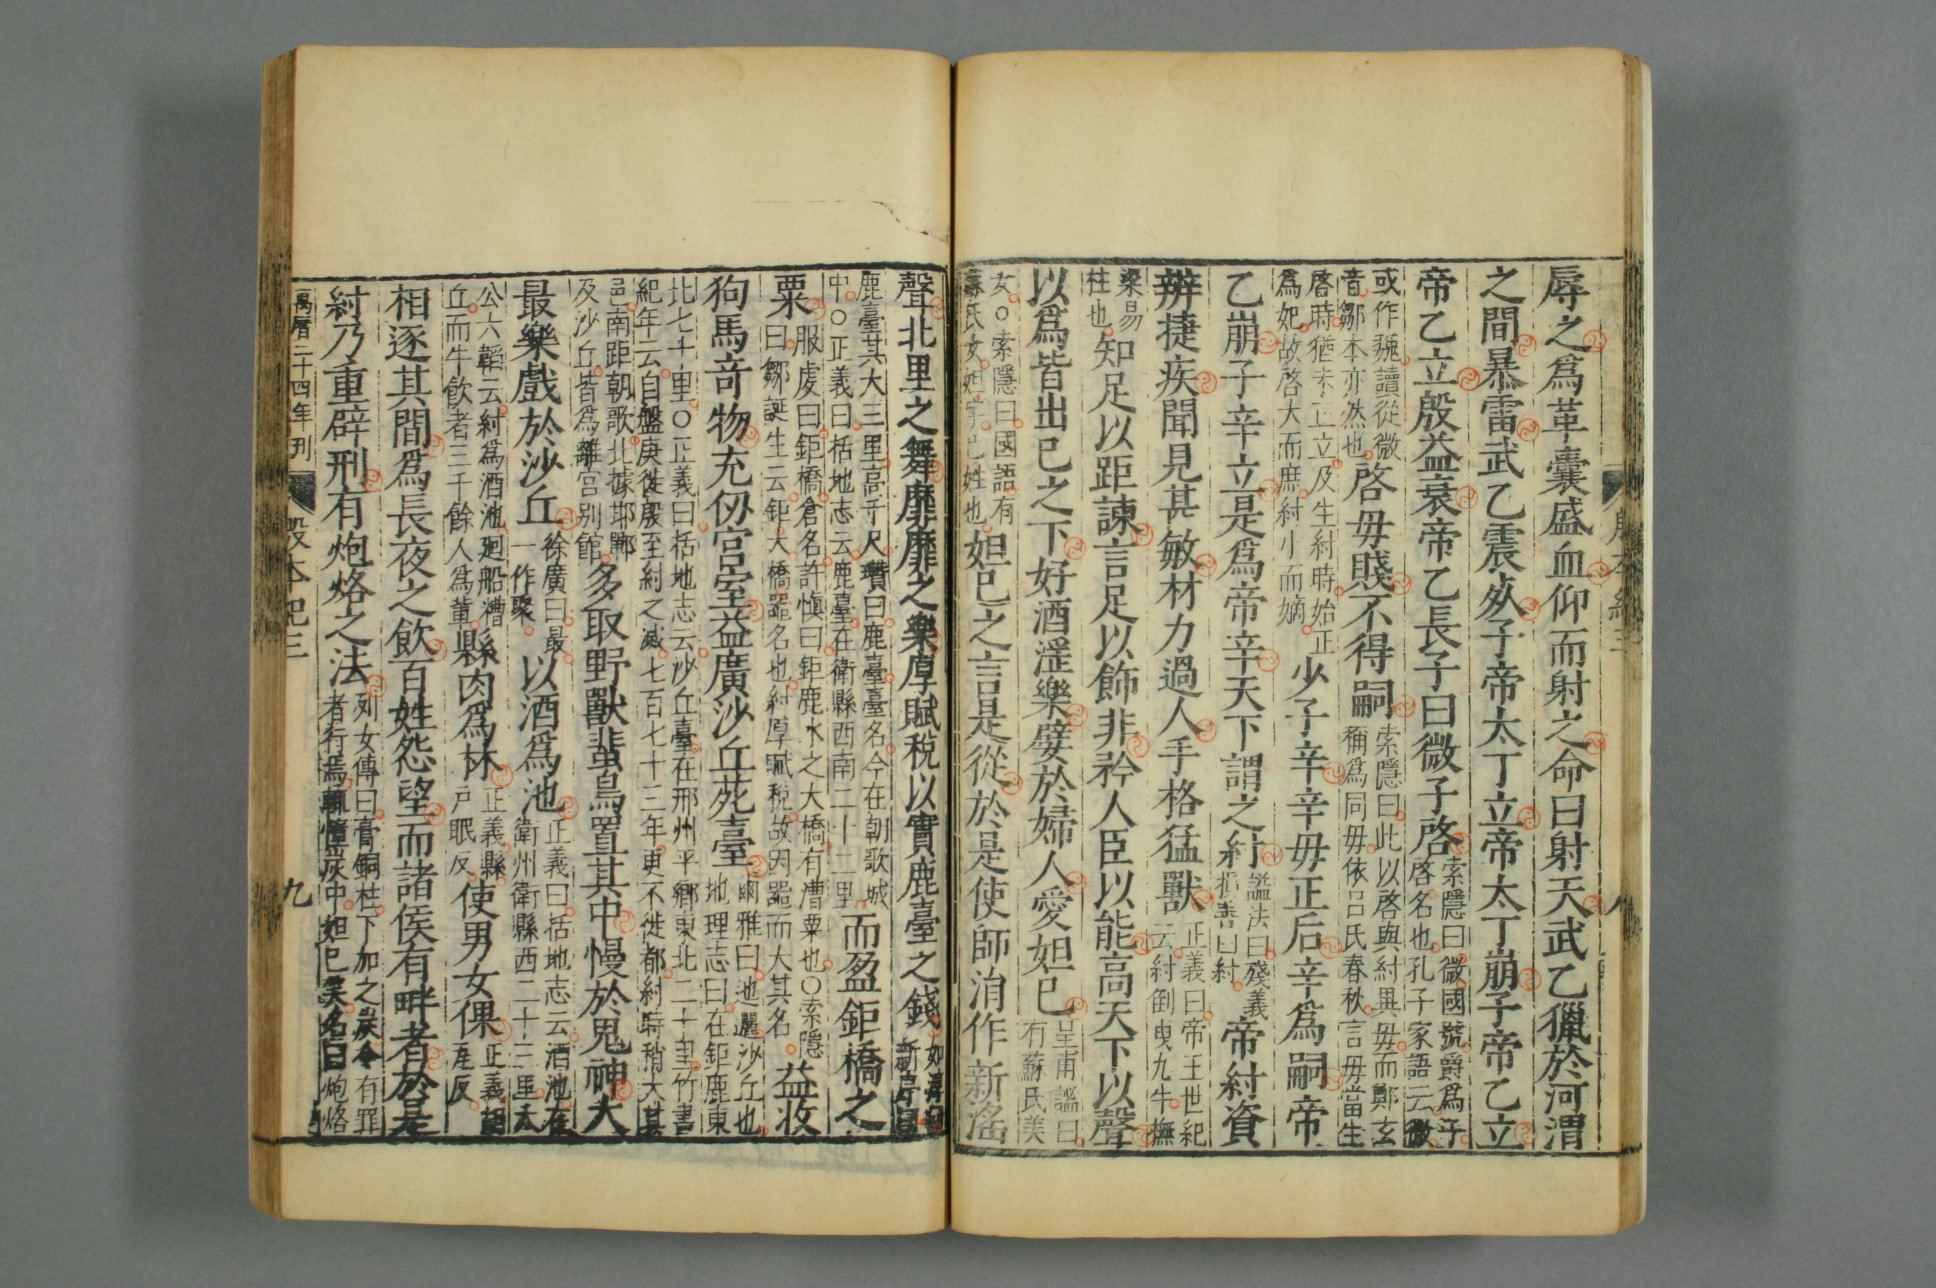 殷本紀三
辱之爲革囊盛血仰而射之命曰射天武乙獵於河渭
之間暴雷武乙震死子帝太丁立帝太丁崩子帝乙立
帝乙立殷益衰帝乙長子曰微子啓索隱曰微國號爵爲子啓名也孔子家語云微
或作魏讀從微音鄒本亦然也啓母賤不得嗣索隱曰此以啓與紂異母而鄭玄稱爲同母依呂氏春秋言母當生
啓時猶未正立及生紂時始正爲妃故啓大而庶紂小而嫡少子辛辛母正后辛爲嗣帝
乙崩子辛立是爲帝辛天下謂之紂謚法曰殘義損善曰紂帝紂資
辨捷疾聞見甚敏材力過人手格猛獸正義曰帝王世紀云紂倒曳九牛撫
梁易柱也知足以距諫言足以飾非矜人臣以能高天下以聲
以爲皆出己之下好酒淫樂嬖於婦人愛妲己皇甫謐曰有蘇氏美
女○索隱曰國語有蘇氏女妲字己姓也妲己之言是從於是使師涓作新淫
聲北里之舞靡靡之樂厚賦稅以實鹿臺之錢如淳曰新序曰
鹿臺其大三里高千尺瓚曰鹿臺臺名今在朝歌城中○正義曰括地志云鹿臺在衛縣西南二十二里而盈鉅橋之
粟服虔曰鉅橋倉名許慎曰鉅鹿水之大橋有漕粟也○索隱曰鄒誕生云鉅大橋器名也紂厚賦稅故因器而大其名益收
狗馬奇物充仞宮室益廣沙丘苑臺爾雅曰迆邐沙丘也地理志曰在鉅鹿東
北七十里○正義曰括地志云沙丘臺在邢州平鄉東北二十里竹書紀年云自盤庚徙殷至紂之滅七百七十三年更不徙都紂時稍大其
邑南距朝歌北據邯鄲及沙丘皆爲離宮别館多取野獸蜚鳥置其中慢於鬼神大
最樂戲於沙丘徐廣曰最一作聚以酒爲池正義曰括地志云酒池在衛州衛縣西二十三里太
公六韜云紂爲酒池廻船糟丘而牛飲者三千餘人爲輩縣肉爲林正義縣戶眠反使男女倮正義胡瓦反
相逐其間爲長夜之飲百姓怨望而諸侯有畔者於是
紂乃重辟刑有炮烙之法列女傳曰膏銅柱下加之炭令有罪者行焉輒墮炭中妲己笑名曰炮烙
萬曆二十四年刊
殷本紀三
九